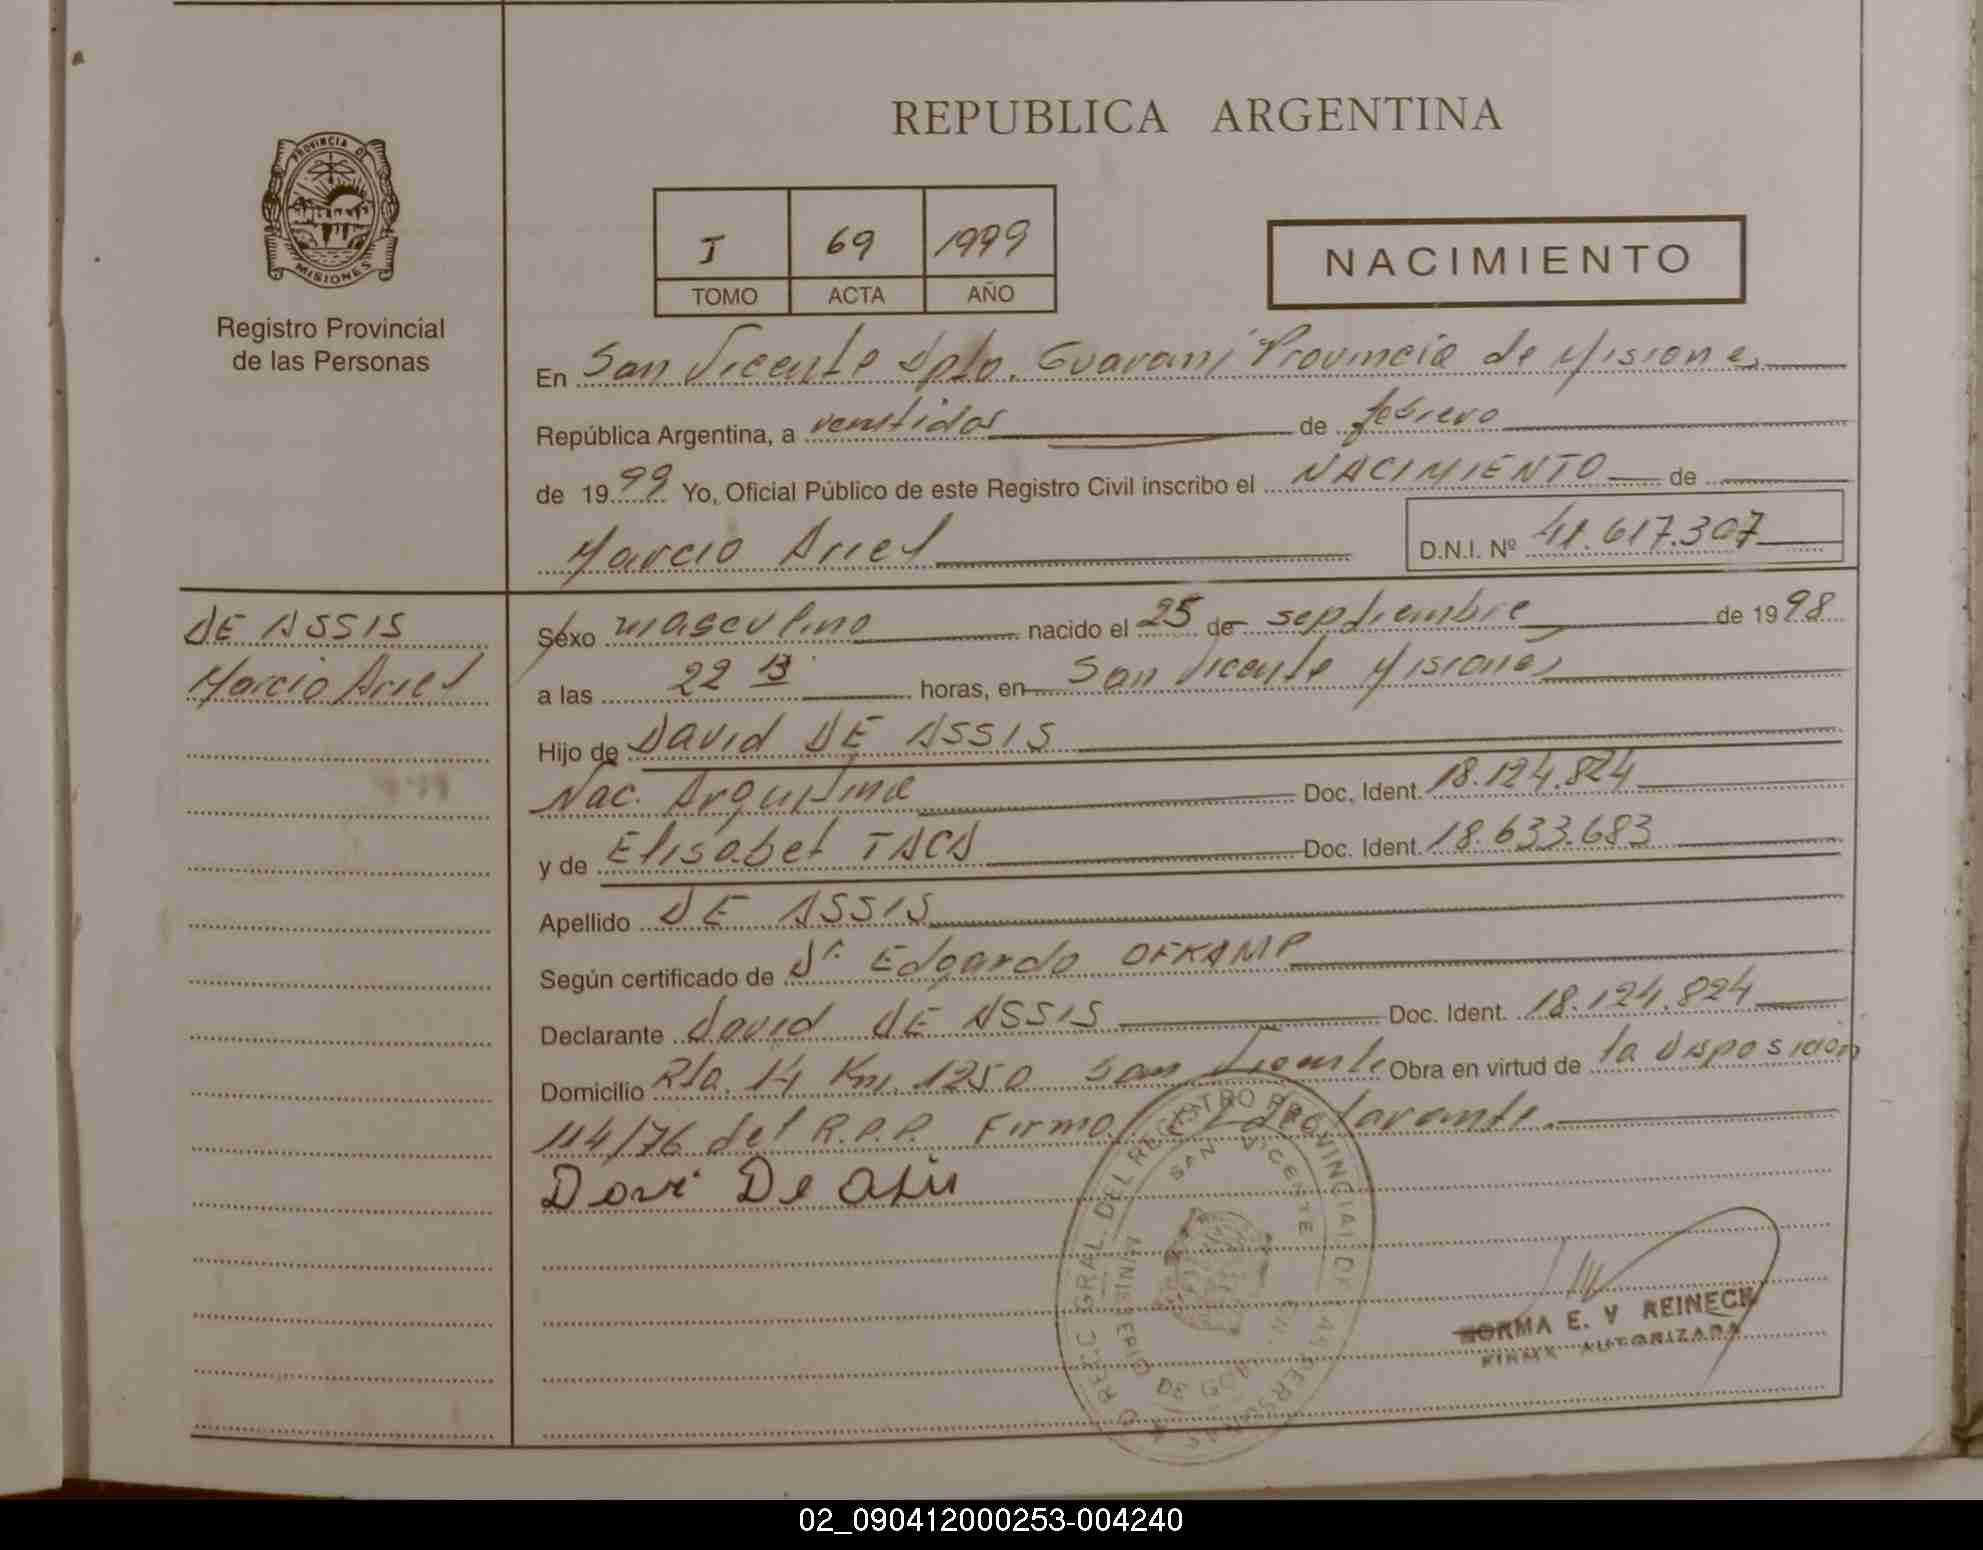 REPUBLICA ARGENTINA
PROVINCIA DE
MISIONES
Registro Provincial
de las Personas
I 69 1999
TOMO ACTA AÑO
NACIMIENTO
En San Vicente Dpto. Guaraní Provincia de Misiones
República Argentina, a veintidos de febrero
de 1999 Yo, Oficial Público de este Registro Civil inscribo el NACIMIENTO de
Marcio Ariel D.N.I. Nº 41.617.307
DE ASSIS
Marcio Ariel
Sexo masculino nacido el 25 de septiembre de 1998
a las 22 horas, en San Vicente Misiones
Hijo de David DE ASSIS
Nac. Argentina Doc. Ident. 18.124.824
y de Elisabet TACA Doc. Ident. 18.633.683
Apellido DE ASSIS
Según certificado de Dr. Edgardo OFKAMP
Declarante David DE ASSIS Doc. Ident. 18.124.824
Domicilio Rta. 14 Km. 1250 San Vicente Obra en virtud de la disposición
114/76 del R.P.P. Firma El Declarante.
Davi De
DIREC. GRAL. DEL REGISTRO PROVINCIAL DE LAS PERSONAS
SAN VICENTE
MINISTERIO DE GOB.
NORMA E. V REINECK
FIRMA AUTORIZADA
02_090412000253-004240